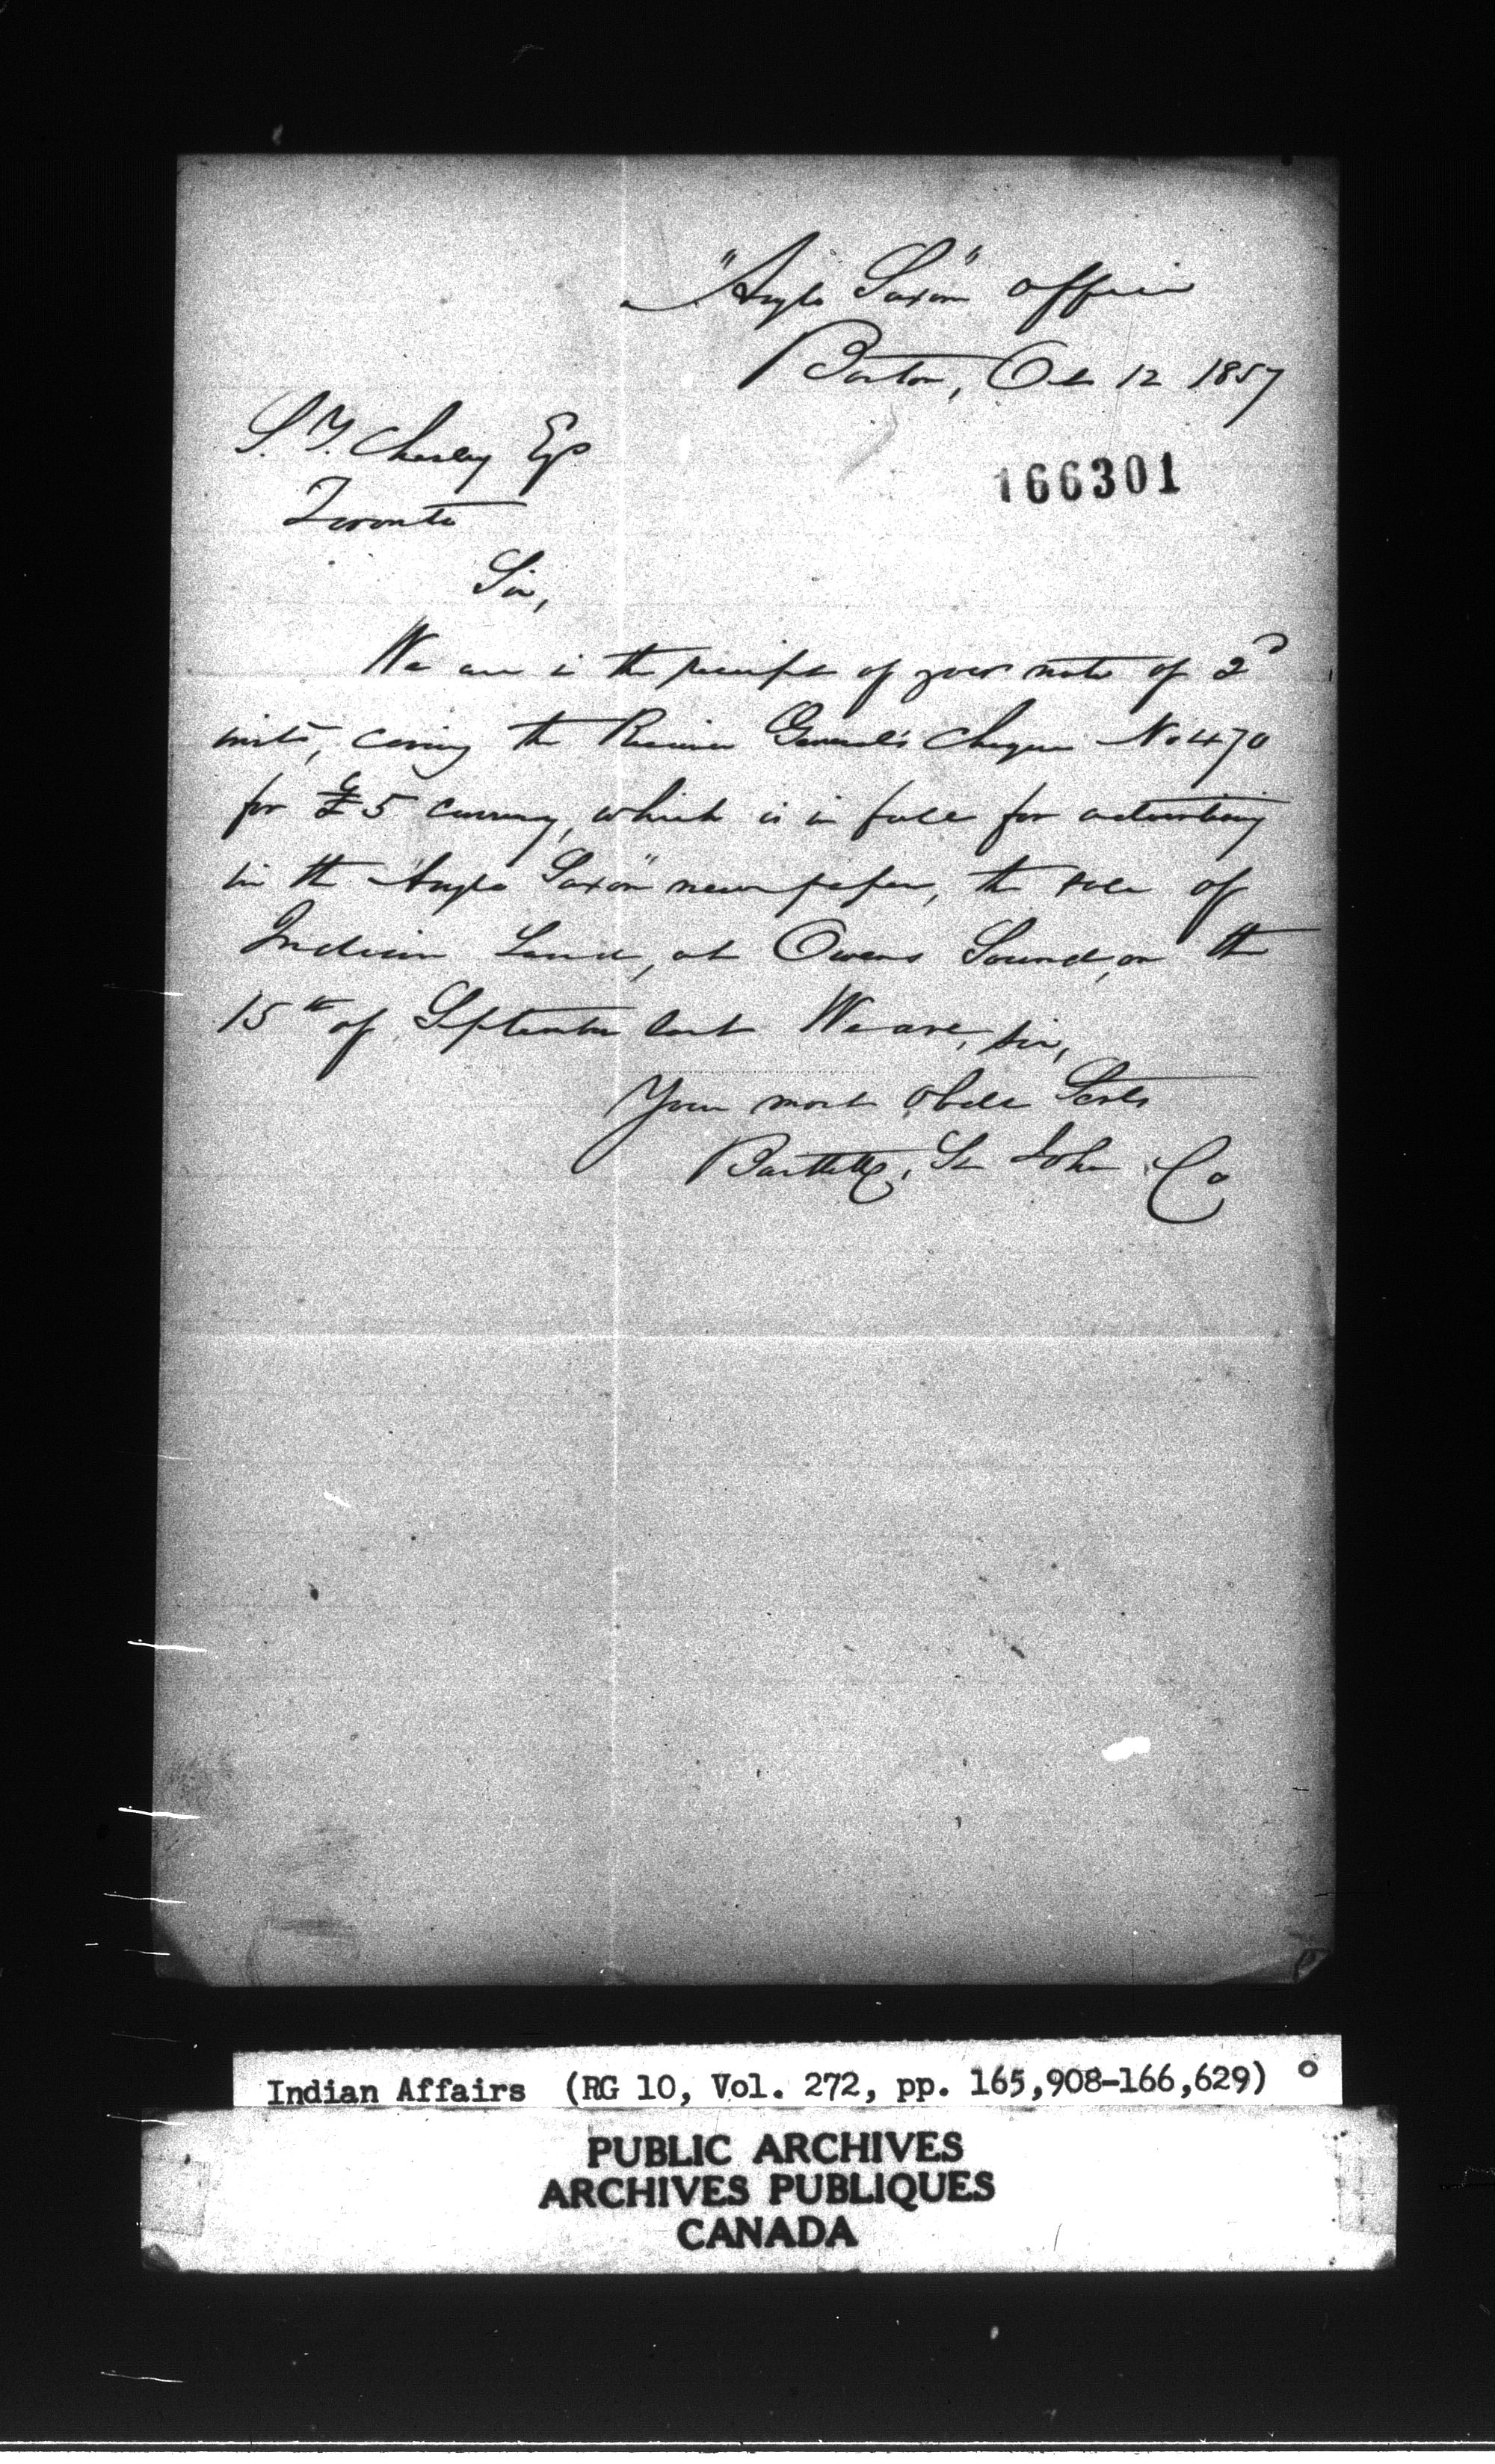 "Anglo Saxon" Office
Boston, Oct 12 1857
S. Y. Chesley Esq
166301
Toronto
Sir,
We are in the receipt of your note of 2d
inst, covering the Receiver General's cheque No 470
for £5 currency, which is in full for advertising
in the "Anglo Saxon" newspaper, the sale of
Indian Land, at Owens Sound, on the
15th of September last We are, sir,
Your most obdt Servts
Bartlett, St John Co
Indian Affairs (RG 10, Vol. 272, pp. 165,908-166,629)
PUBLIC ARCHIVES
ARCHIVES PUBLIQUES
CANADA